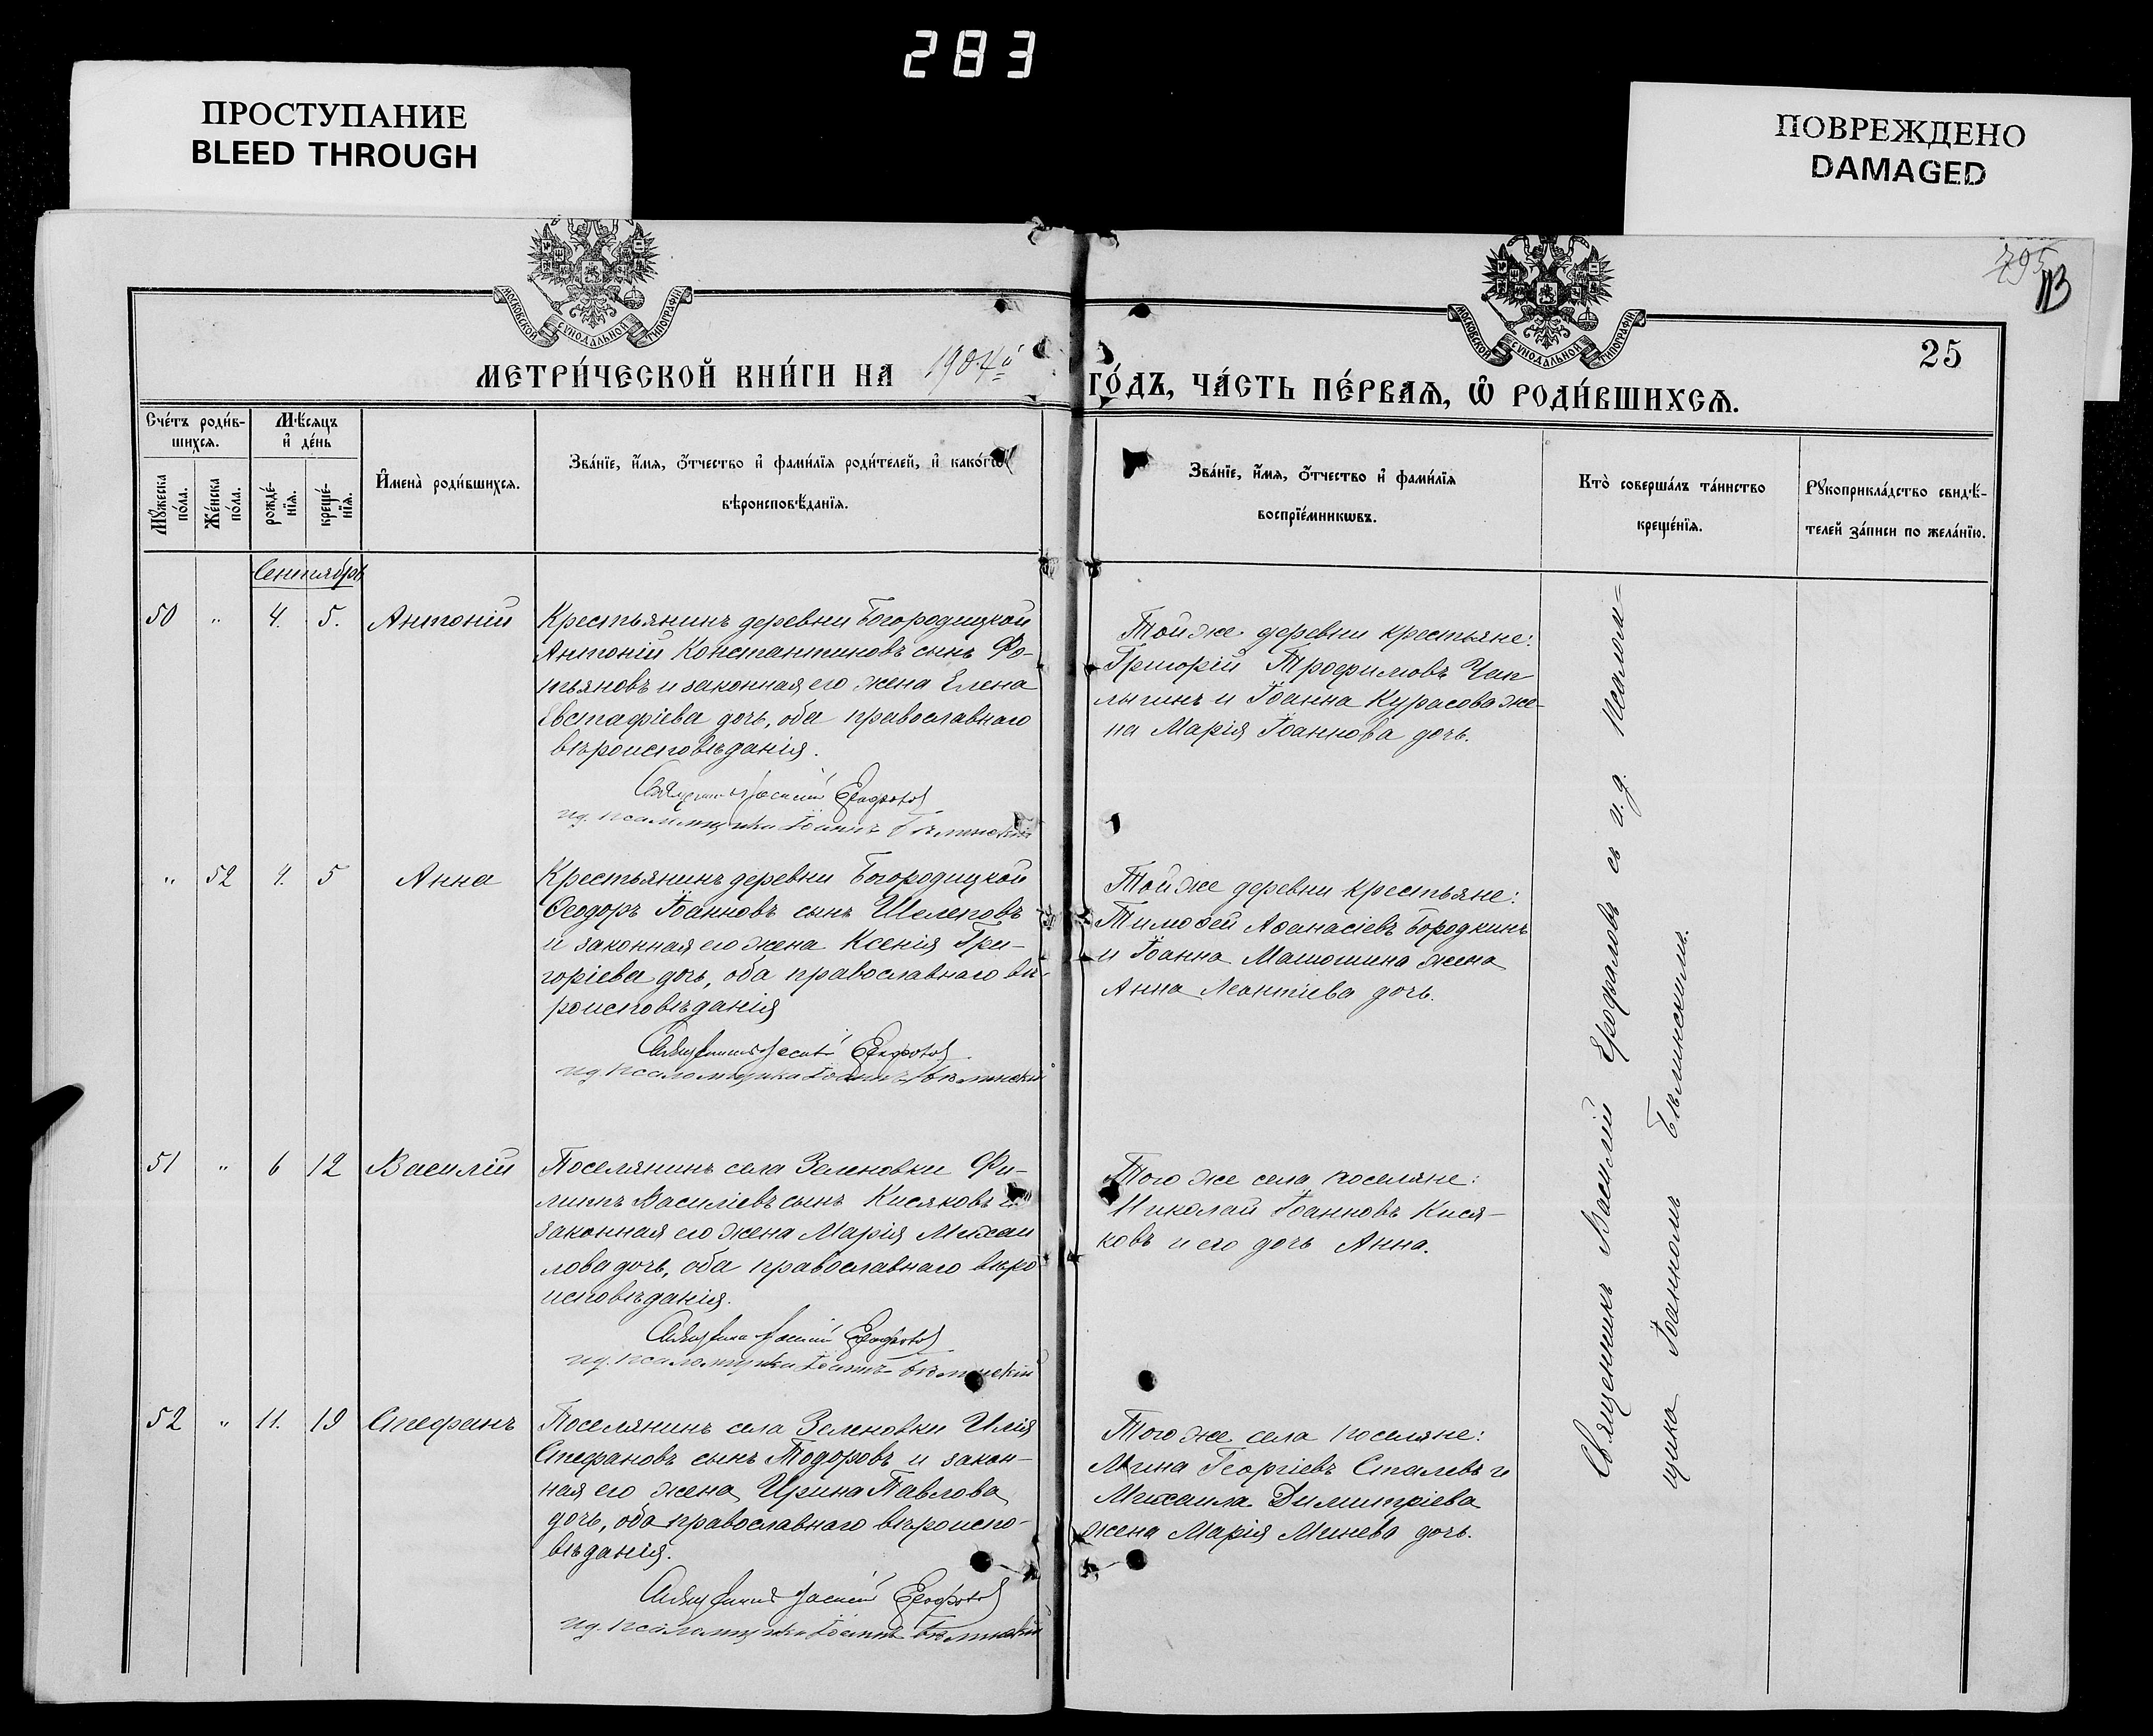 283
ПРОСТУПАНИЕ
BLEED THROUGH
ПОВРЕЖДЕНО
DAMAGED
795
113
МОСКОВСКОЙ СѴНОДАЛЬНОЙ ТИПОГРАФІИ
МОСКОВСКОЙ СѴНОДАЛЬНОЙ ТИПОГРАФІИ
25
МЕТРИ́ЧЕСКОЙ КНИ́ГИ НА 1904й ГО́ДЪ, ЧА́СТЬ ПЕ́РВАѦ, Ѡ РОДИ́ВШИХСѦ.
Сче́тъ роди́в-
шихсѧ.
Мѣ́сѧцъ
и҆ де́нь
Мꙋ́жеска по́ла.
Же́нска по́ла.
рожде́-
нїѧ.
креще́-
нїѧ.
И҆мена̀ роди́вшихсѧ.
Зва́нїе, и҆́мѧ, ѻ҆́тчество и҆ фами́лїѧ роди́телей, и҆ како́гѡ
вѣроисповѣ́данїѧ.
Зва́нїе, и҆́мѧ, ѻ҆́тчество и҆ фами́лїѧ
воспрїе́мникѡвъ.
Кто̀ соверша́лъ та́инство
креще́нїѧ.
Рꙋкоприкла́дство свидѣ́-
телей за́писи по жела́нїю.
Сентябрь
50 " 4. 5. Антоній
Крестьянинъ деревни Богородицкой
Антоній Константиновъ сынъ Фо-
и законная его жена Елена
Евстафіева дочь, оба православнаго
вѣроисповѣданія.
Священникъ Василій Ерофаловъ
ид. псаломщика Іоаннъ Бѣлинскій
Той же деревни крестьяне:
Григорій Трофимовъ Чап
лыгинъ и Іоанна Курасова же-
на Марія Іоаннова дочь.
" 52 4. 5 Анна
Крестьянинъ деревни Богородицкой
Ѳеодоръ Іоанновъ сынъ Шелеповъ
и законная его жена Ксенія Гри-
горіева дочь, оба православнаго вѣ-
роисповѣданія
Священникъ Василій Ерофаловъ
ид. псаломщика Іоаннъ Бѣлинскій
Той же деревни крестьяне:
Тимоѳей Аѳанасіевъ Бородкинъ
и Іоанна Матюшина жена
Анна Леонтіева дочь.
51 " 6 12 Василій
Поселянинъ села Зеленовки Фи-
липъ Василіевъ сынъ Кисяковъ и
законная его жена Марія Михаи
лова дочь, оба православнаго вѣро
исповѣданія.
Священникъ Василій Ерофаловъ
ид. псаломщика Іоаннъ Бѣлинскій
Того же села поселяне:
Николай Іоанновъ Кися-
ковъ и его дочь Анна.
52 " 11. 19 Стефанъ
Поселянинъ села Зеленовки Илія
Стефановъ сынъ Тодоровъ и закон-
ная его жена Ирина Павлова
дочь, оба православнаго вѣроиспо-
вѣданія.
Священникъ Василій Ерофаловъ
ид. псаломщика Іоаннъ Бѣлинскій
Того же села поселяне:
Мина Георгіевъ Сталевъ и
Михаила Димитріева
жена Марія Минева дочь.
Священникъ Василій Ерофаловъ съ и. д. псалом-
щика Іоанномъ Бѣлинскимъ.